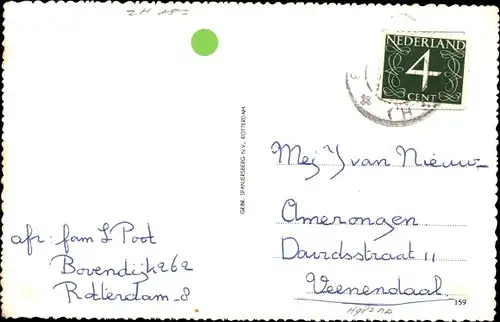 ZH 15=
NEDERLAND
4
CENT
GEBR. SPANJERSBERG N.V., ROTTERDAM
Mej Y van Nieuw-
Amerongen
Davidsstraat 11
Veenendaal
afz: fam L Poot
Bovendijk 262
Rotterdam_8
159